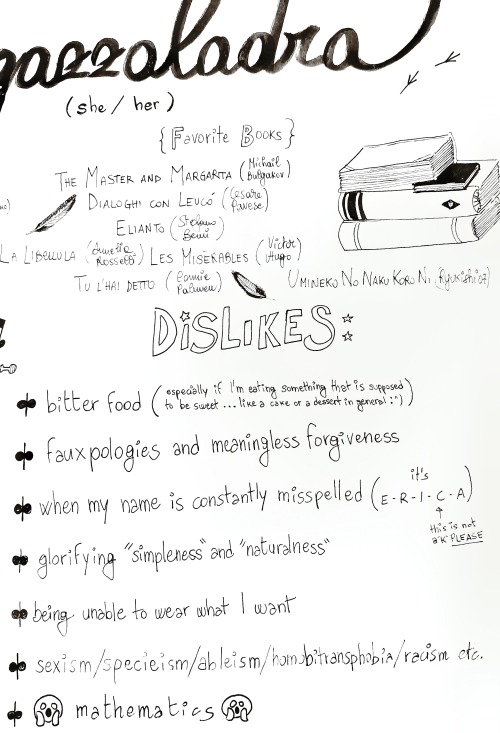 gazzaladra
(she/her)
{Favorite Books}
The Master and Margarita (Michail Bulgakov)
Dialoghi con Leucò (Cesare Pavese)
Elianto (Stefano Benni)
La Libellula (Amelia Rosselli) Les Misérables (Victor Hugo)
Tu l'hai detto (Connie Palmen) Umineko No Naku Koro Ni (Ryukishi07)
DISLIKES:
bitter food (especially if I'm eating something that is supposed
to be sweet... like a cake or a dessert in general :"))
fauxpologies and meaningless forgiveness
when my name is constantly misspelled (it's E-R-I-C-A)
this is not
a "K" PLEASE
glorifying "simpleness" and "naturalness"
being unable to wear what I want
sexism/specieism/ableism/homobitransphobia/racism etc.
mathematics